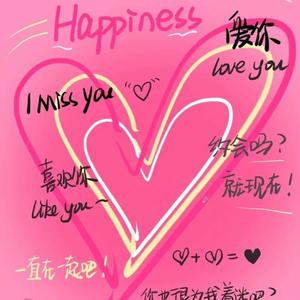 Happiness
爱你
love you
I miss you
约会吗?
喜欢你
就现在!
like you~
一直在一起吧!
你也很为我着迷吧?